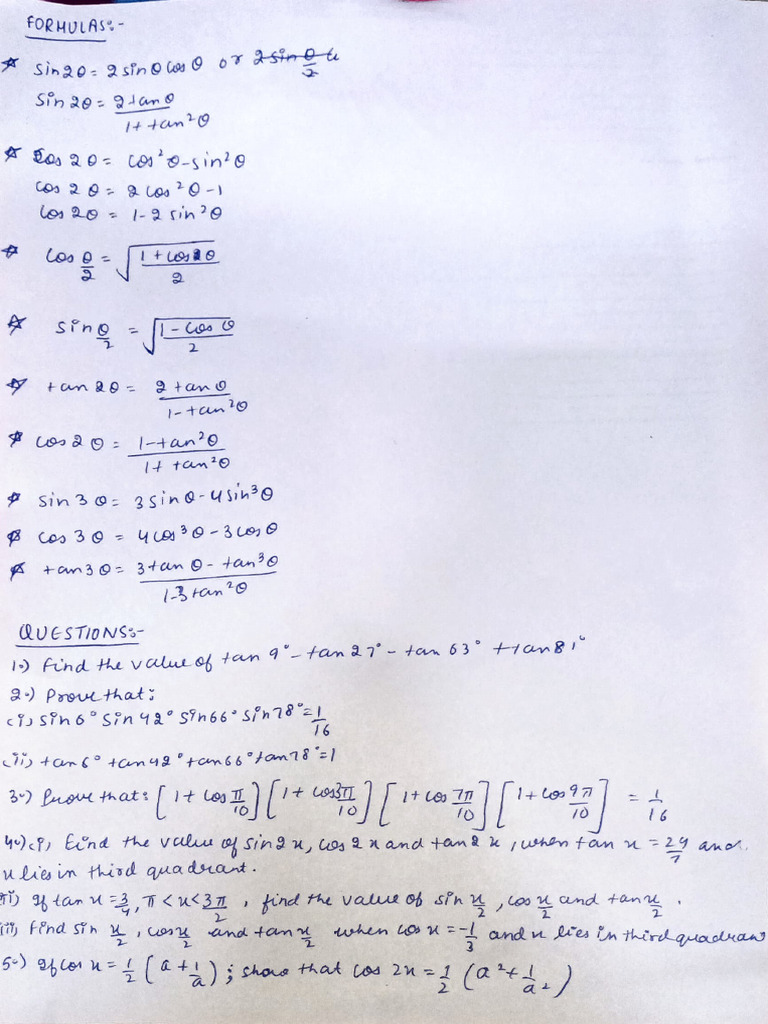 FORMULAS:-
☆ sin2θ = 2sinθcosθ or
Sin 2θ = 2tanθ / 1+tan²θ
☆ Cos 2θ = cos²θ-sin²θ
cos 2θ = 2cos²θ-1
cos 2θ = 1-2sin²θ
☆ cos θ/2 = √(1+cosθ / 2)
☆ sin θ/2 = √(1-cosθ / 2)
☆ tan 2θ = 2tanθ / 1-tan²θ
☆ cos2θ = 1-tan²θ / 1+tan²θ
☆ sin3θ = 3sinθ-4sin³θ
☆ cos 3θ = 4cos³θ-3cosθ
☆ tan3θ = 3tanθ-tan³θ / 1-3tan²θ
QUESTIONS:-
1.) Find the value of tan 9° - tan 27° - tan 63° + tan 81°
2.) Prove that:
(i) sin6° sin42° sin66° sin78° = 1/16
(ii) tan6° tan42° tan66° tan78° = 1
3.) Prove that: [1+cos π/10] [1+cos 3π/10] [1+cos 7π/10] [1+cos 9π/10] = 1/16
4.) (i) Find the value of sin2x, cos2x and tan2x, when tan x = 24/7 and
x lies in third quadrant.
ii) If tan x = 3/4, π<x<3π/2, find the value of sin x/2, cos x/2 and tan x/2.
iii) Find sin x/2, cos x/2 and tan x/2 when cos x = -1/3 and x lies in third quadrant
5.) If cos x = 1/2 (a + 1/a); show that cos 2x = 1/2 (a² + 1/a²)